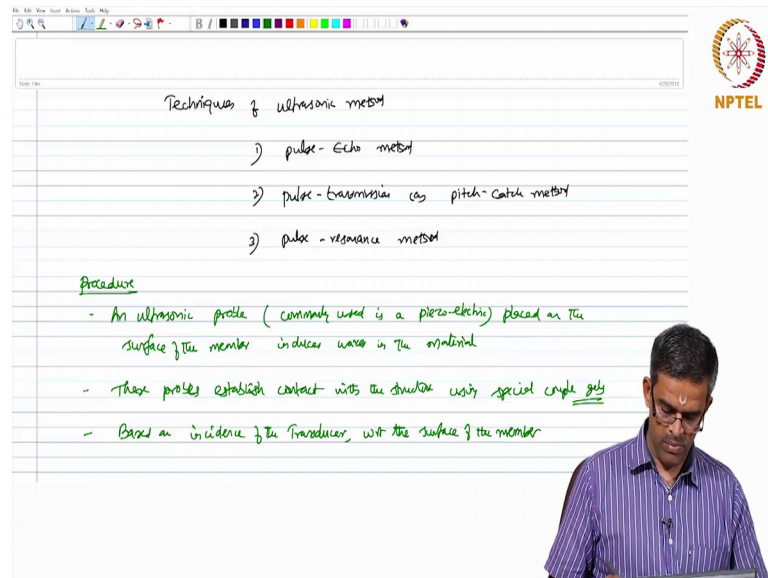 File Edit View Insert Actions Tools Help
B I
NPTEL
Note Title
Techniques of ultrasonic method
1) pulse-Echo method
2) pulse-transmission (or) pitch-catch method
3) pulse-resonance method
Procedure
- An ultrasonic probe (commonly used is a piezo-electric) placed on the
surface of the member induces waves in the material
- These probes establish contact with the structure using special couple gels
- Based on incidence of the Transducer, wrt the surface of the member